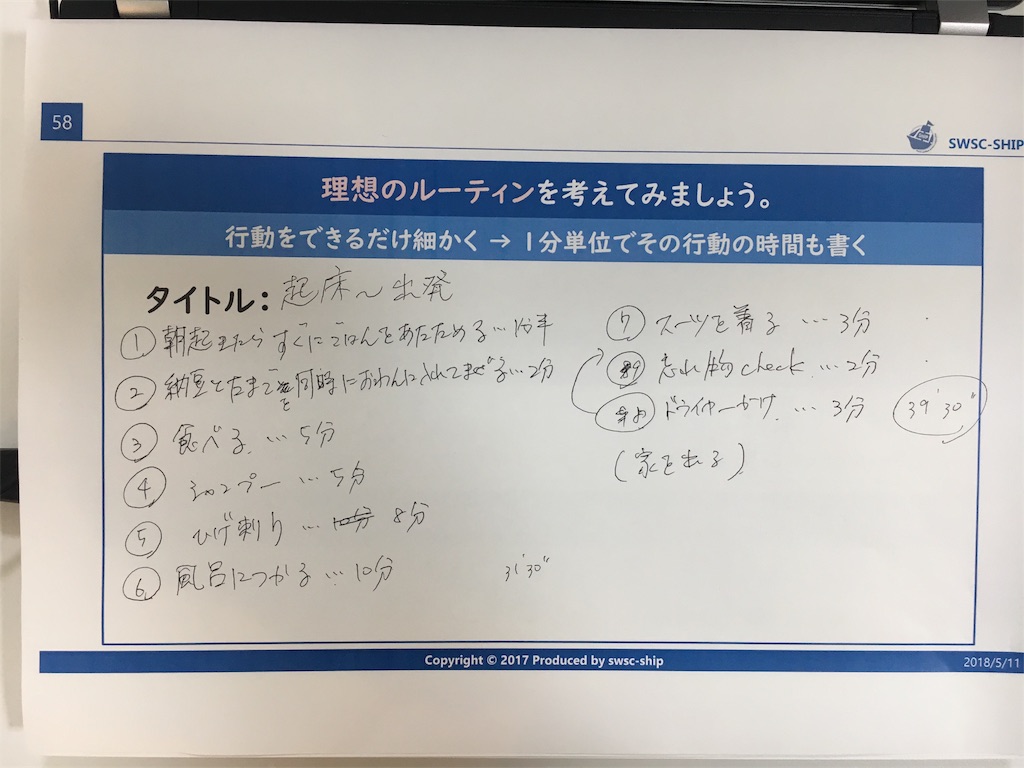 58
SWSC-SHIP
理想のルーティンを考えてみましょう。
行動をできるだけ細かく → 1分単位でその行動の時間も書く
タイトル: 起床〜出発
① 朝起きたらすぐにごはんをあたためる…1分半
② 納豆とたまごを同時におわんに入れてまぜる…2分
③ 食べる…5分
④ シャンプー…5分
⑤ ひげ剃り…10分 8分
⑥ 風呂につかる…10分
31'30"
⑦ スーツを着る…3分
⑨ 忘れ物check…2分
ドライヤーかけ…3分
39'30"
(家を出る)
Copyright © 2017 Produced by swsc-ship
2018/5/11